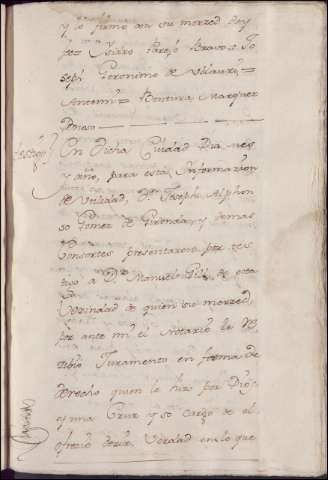 y lo firmo con su merced doy
fee Isidro Parejo Bravo = Jo
seph Geronimo de =
Antemi = Bentura Marquez
Testigo
En dicha Ciudad dia, mes
y año, para esta Informazion
de Utilidad, Dn Joseph Alphon
so Gomez de Gironda, y demas
Consortes presentaron por tes
tigo a Dn Manuel de esta
Vezindad de quien su merced,
por ante mi el Notario le R
zibio Juramento en forma de
derecho quien le hizo por Dios,
y una Cruz y so cargo de el
ofrecio dezir Verdad en lo que